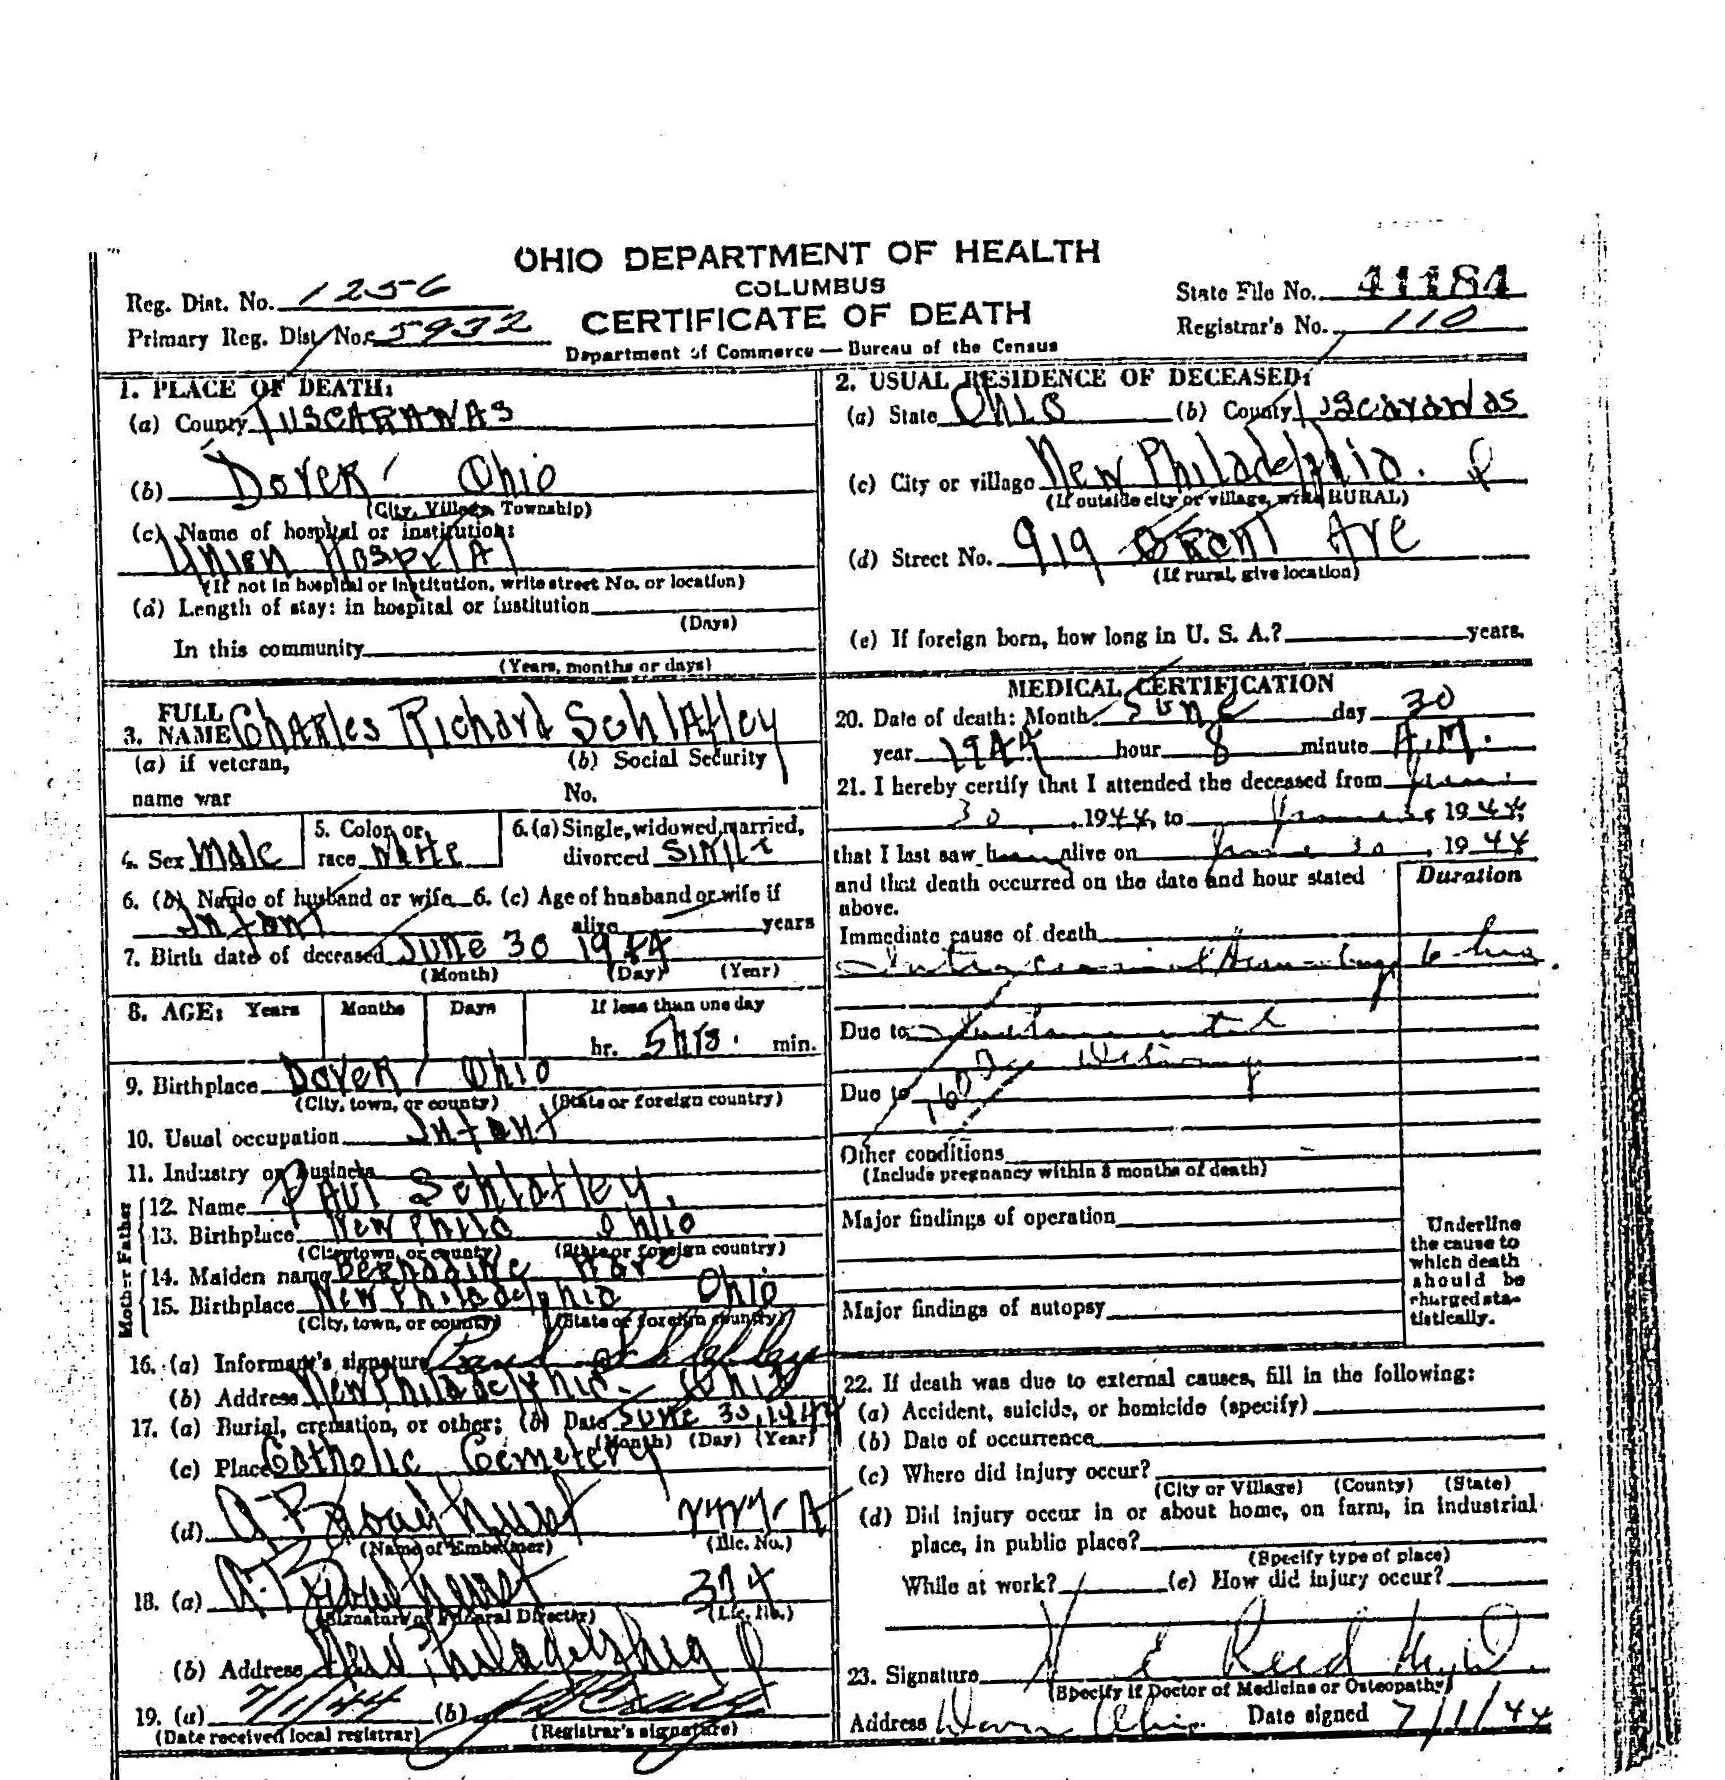 OHIO DEPARTMENT OF HEALTH
COLUMBUS
CERTIFICATE OF DEATH
Department of Commerce — Bureau of the Census
Reg. Dist. No. 1256
Primary Reg. Dist. No. 5932
State File No. 41184
Registrar's No. 110
1. PLACE OF DEATH:
(a) County TUSCARAWAS
(b) Dover, Ohio
(City, Village, Township)
(c) Name of hospital or institution:
Union Hospital
(If not in hospital or institution, write street No. or location)
(d) Length of stay: in hospital or institution
(Days)
In this community
(Years, months or days)
2. USUAL RESIDENCE OF DECEASED:
(a) State Ohio (b) County Tuscarawas
(c) City or village New Philadelphia.
(If outside city or village, write RURAL)
(d) Street No. 919 Grant Ave
(If rural, give location)
(e) If foreign born, how long in U. S. A.? years.
3. FULL NAME Charles Richard Schlafley
(a) if veteran, (b) Social Security
name war No.
4. Sex Male 5. Color or race White 6. (a) Single, widowed, married, divorced Single
6. (b) Name of husband or wife 6. (c) Age of husband or wife if
Infant alive years
7. Birth date of deceased June 30 1944
(Month) (Day) (Year)
8. AGE: Years Months Days If less than one day
hr. 5 hrs. min.
9. Birthplace Dover, Ohio
(City, town, or county) (State or foreign country)
10. Usual occupation Infant
11. Industry or business
Father
12. Name Paul Schlafley.
13. Birthplace New Phila Ohio
(City, town, or county) (State or foreign country)
Mother
14. Maiden name Bernadine
15. Birthplace New Philadelphia Ohio
(City, town, or county) (State or foreign country)
16. (a) Informant's signature Paul Schlafley
(b) Address New Philadelphia Ohio
17. (a) Burial, cremation, or other; (b) Date June 30, 1944
(Month) (Day) (Year)
(c) Place Catholic Cemetery
(d)
(Name of Embalmer) (Lic. No.)
18. (a) 374
(Signature of Funeral Director) (Lic. No.)
(b) Address New Philadelphia O
19. (a) 7/1/44 (b)
(Date received local registrar) (Registrar's signature)
MEDICAL CERTIFICATION
20. Date of death: Month June day 30
year 1944 hour 8 minute A.M.
21. I hereby certify that I attended the deceased from June
30, 1944, to June 30, 1944;
that I last saw him alive on June 30, 1944
and that death occurred on the date and hour stated above.
Duration
Immediate cause of death
Intracranial Hemorrhage 6 hrs.
Due to Instrumental
Delivery
Due to
Other conditions
(Include pregnancy within 3 months of death)
Major findings of operation
Major findings of autopsy
Underline the cause to which death should be charged statistically.
22. If death was due to external causes, fill in the following:
(a) Accident, suicide, or homicide (specify)
(b) Date of occurrence
(c) Where did injury occur?
(City or Village) (County) (State)
(d) Did injury occur in or about home, on farm, in industrial
place, in public place?
(Specify type of place)
While at work? (e) How did injury occur?
23. Signature H E Reed M.D.
(Specify if Doctor of Medicine or Osteopathy)
Address Dover Ohio. Date signed 7/1/44